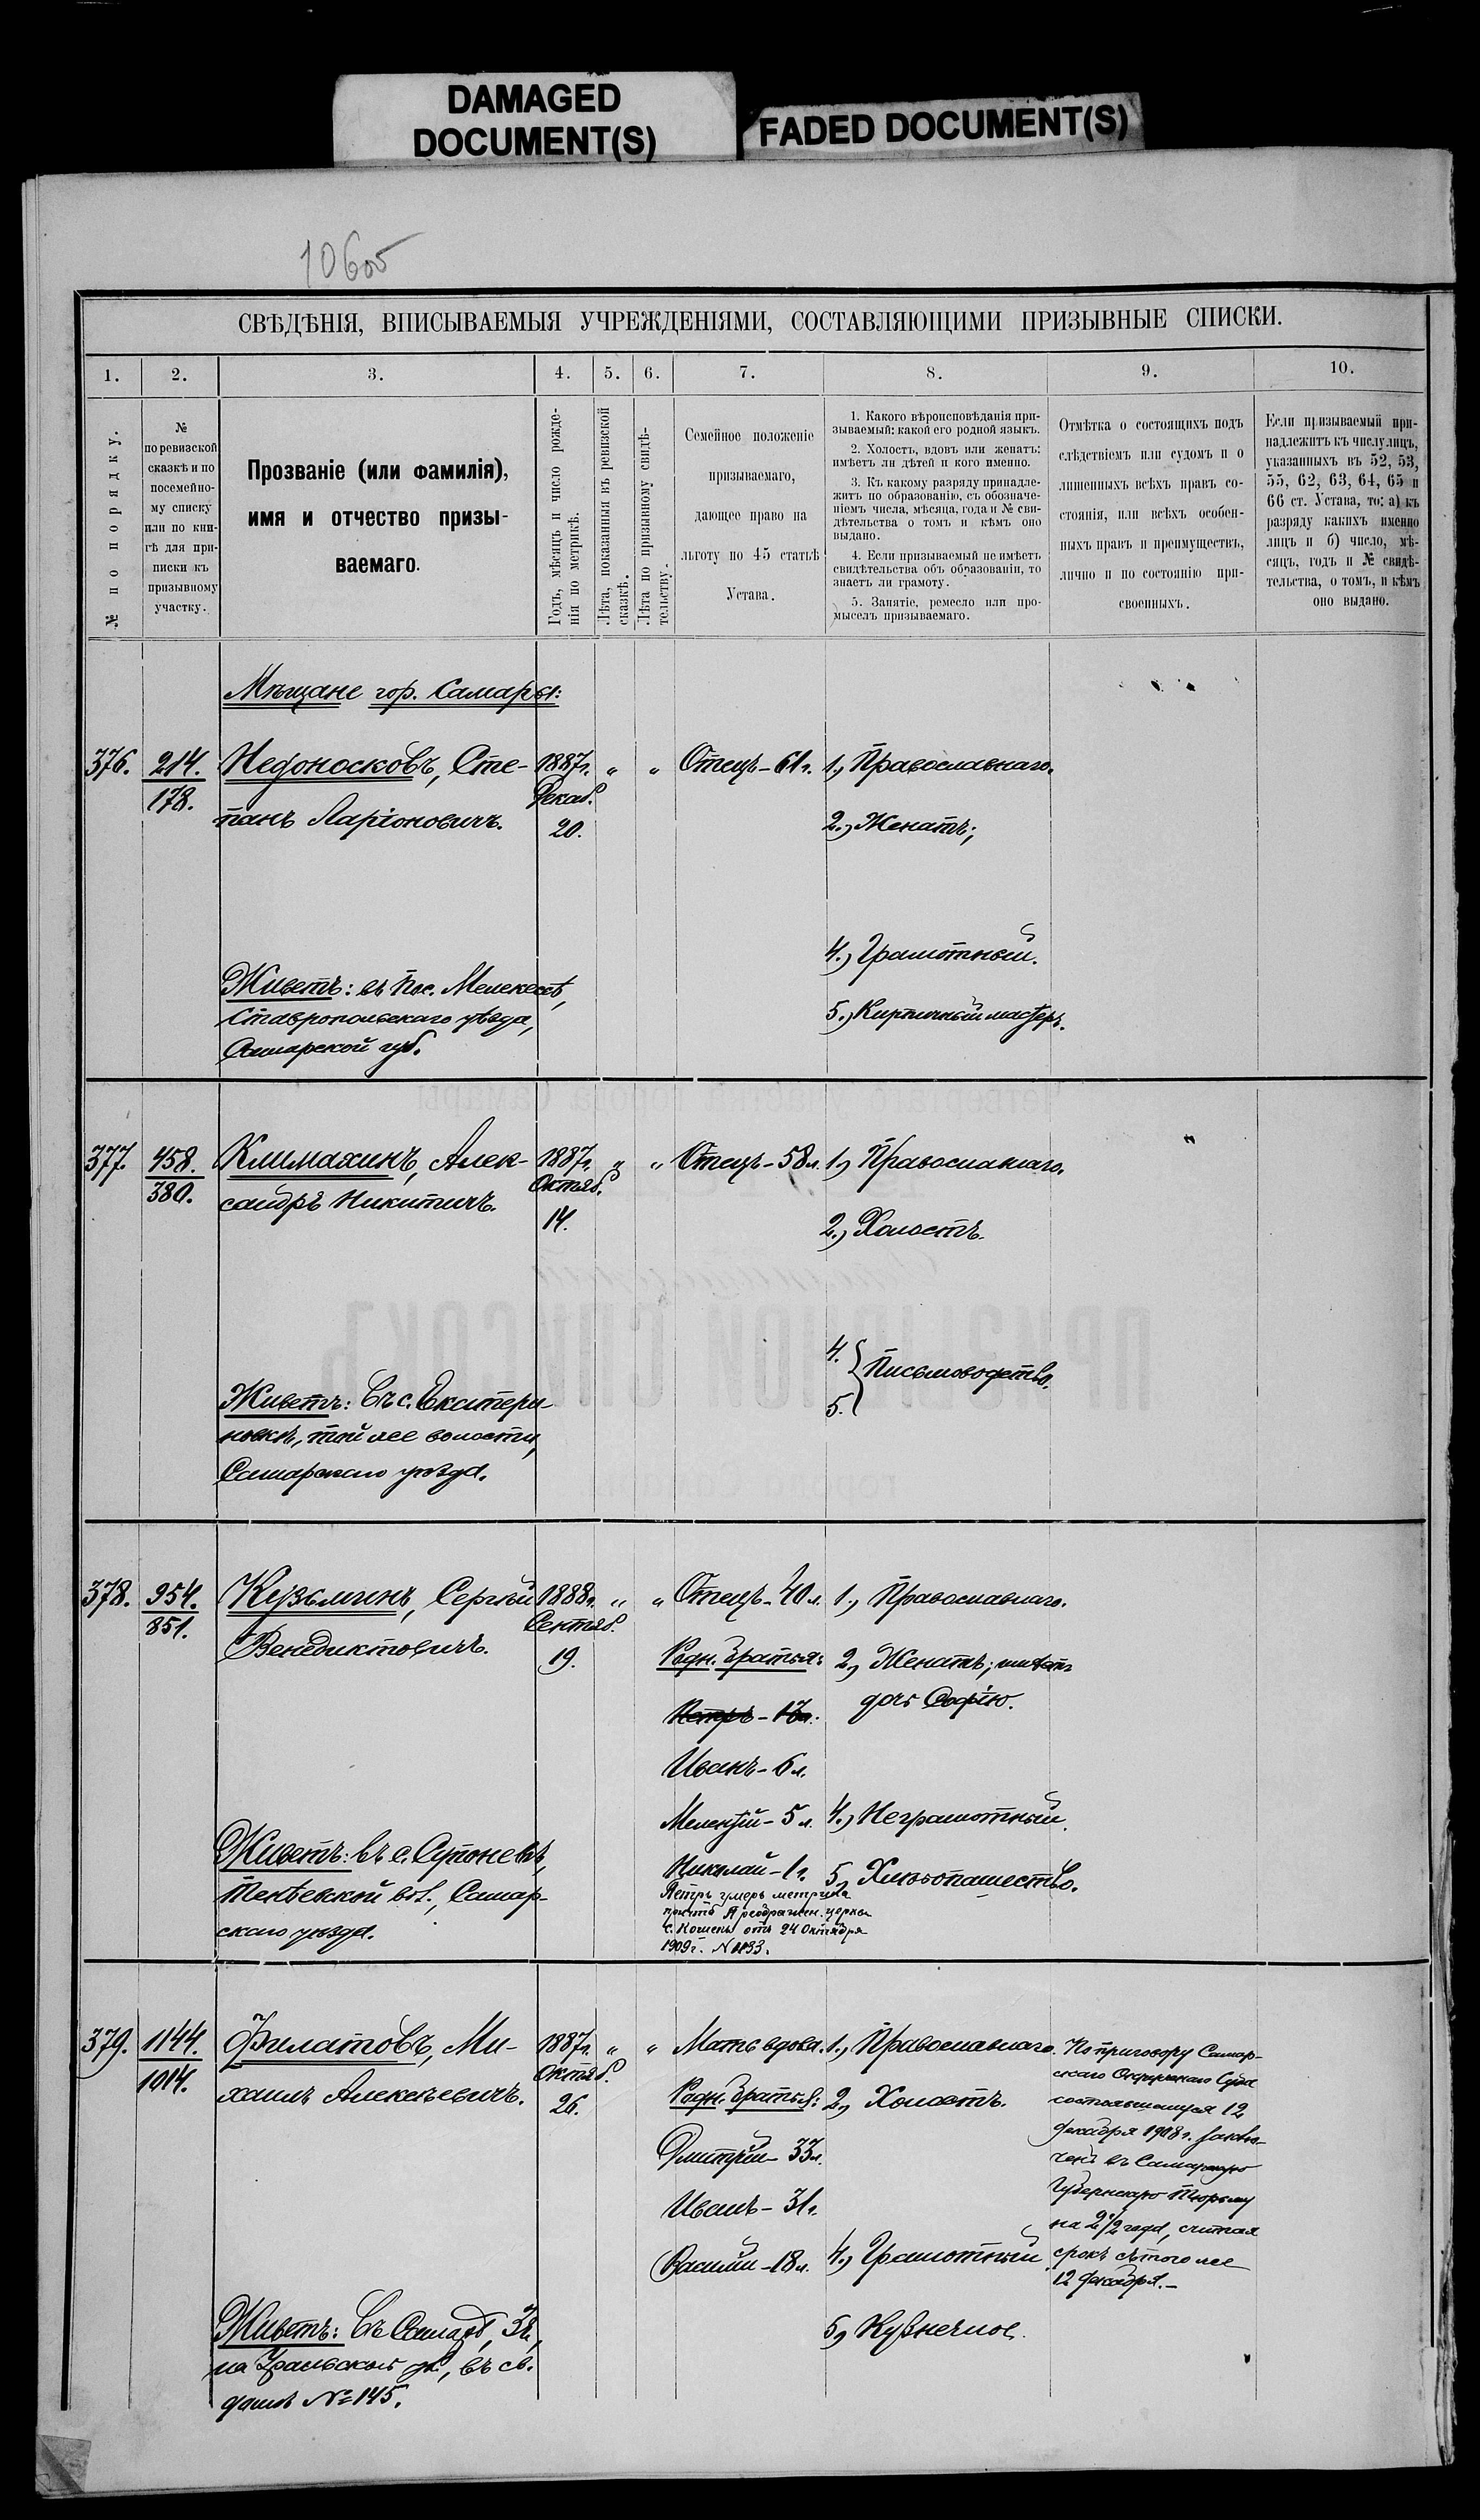 DAMAGED
DOCUMENT(S)
FADED DOCUMENT(S)
СВѢДѢНІЯ, ВПИСЫВАЕМЫЯ УЧРЕЖДЕНІЯМИ, СОСТАВЛЯЮЩИМИ ПРИЗЫВНЫЕ СПИСКИ.
1. 2. 3. 4. 5. 6. 7. 8. 9. 10.
№ по порядку.
№
по ревизской
сказкѣ и по
посемейно-
му списку
или по кни-
гѣ для при-
писки къ
призывному
участку.
Прозваніе (или фамилія),
имя и отчество призы-
ваемаго.
Годъ, мѣсяцъ и число рожде-
нія по метрикѣ.
Лѣта, показанныя въ ревизской
сказкѣ.
Лѣта по призывному свидѣ-
тельству.
Семейное положеніе
призываемаго,
дающее право на
льготу по 45 статьѣ
Устава.
1. Какого вѣроисповѣданія при-
зываемый: какой его родной языкъ.
2. Холостъ, вдовъ или женатъ:
имѣетъ ли дѣтей и кого именно.
3. Къ какому разряду принадле-
житъ по образованію, съ обозначе-
ніемъ числа, мѣсяца, года и № сви-
дѣтельства о томъ и кѣмъ оно
выдано.
4. Если призываемый не имѣетъ
свидѣтельства объ образованіи, то
знаетъ ли грамоту.
5. Занятіе, ремесло или про-
мыселъ призываемаго.
Отмѣтка о состоящихъ подъ
слѣдствіемъ или судомъ и о
лишенныхъ всѣхъ правъ со-
стоянія, или всѣхъ особен-
ныхъ правъ и преимуществъ,
лично и по состоянію при-
своенныхъ.
Если призываемый при-
надлежитъ къ числу лицъ,
указанныхъ въ 52, 53,
55, 62, 63, 64, 65 и
66 ст. Устава, то: а) къ
разряду какихъ именно
лицъ и б) число, мѣ-
сяцъ, годъ и № свидѣ-
тельства, о томъ, и кѣмъ
оно выдано.
Мѣщане гор. Самары:
376. 214. Недоносковъ, Сте- 1887г. „ „ Отецъ - 61 г. 1., Православнаго.
178. панъ Ларіоновичъ. Декаб.
20. 2., Женатъ;
4., Грамотный.
Живетъ: въ пос. Мелекесѣ, 5., Кирпичный мастеръ.
Ставропольскаго уѣзда,
Самарской губ.
377. 458. Климахинъ, Алек- 1887г. „ „ Отецъ - 58 л. 1., Православнаго.
380. сандръ Никитичъ. Октяб.
14. 2., Холостъ.
4.
Письмоводство.
5.
Живетъ: Въ с. Екатери-
новкѣ, той же волости,
Самарскаго уѣзда.
378. 954. Кузьминъ, Сергѣй 1888г. „ „ Отецъ - 40 л. 1., Православнаго.
851. Венедиктовичъ. Сентяб.
19. Родн. братья: 2., Женатъ; имѣетъ
Петръ - 13 л. дочь Софію.
Иванъ - 6 л.
Мелентій - 5 л. 4.) Неграмотный.
Живетъ: въ с.
Николай - 1 г. 5, Хлѣбопашество.
Тенѣевской вол., Самар-
скаго уѣзда.
Петръ умеръ метрика
причта Преображен. церкви
с. Кошекъ отъ 24 Октября
1909 г.
379. 1144. Филатовъ, Ми- 1887г. „ „ Мать вдова. 1., Православнаго.
1014. хаилъ Алексѣевичъ. Октяб.
26. Родн. братья: 2, Холостъ.
Дмитрій - 33 л.
Иванъ - 31 г.
Василій - 18 л. 4., Грамотный.
5, Кузнечное.
По приговору Самар-
скаго Окружнаго Суда
состоявшемуся 12
декабря 1908 г. заклю-
ченъ въ Самарскую
Губернскую Тюрьму
на 2 1/2 года, считая
срокъ съ того же
12 декабря. -
Живетъ: Въ Самарѣ, 3 ч,
на Уральской ул, въ св.
домѣ № 145.